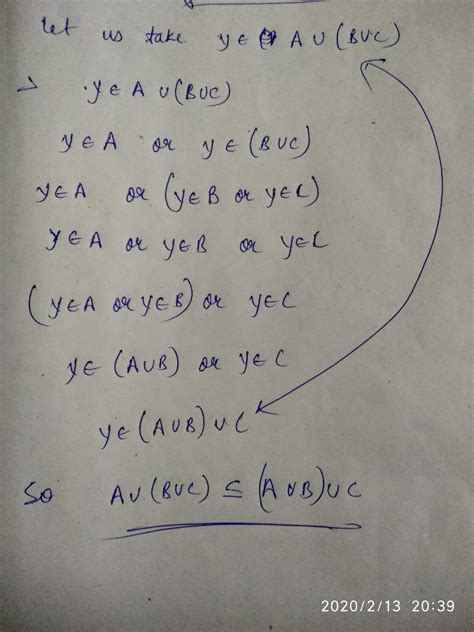 let us take y ∈ A ∪ (B∪C)
y ∈ A ∪ (B∪C)
y ∈ A or y ∈ (B∪C)
y ∈ A or (y∈B or y∈C)
y ∈ A or y∈B or y∈C
(y∈A or y∈B) or y∈C
y ∈ (A∪B) or y∈C
y∈ (A∪B) ∪ C
So A∪(B∪C) ⊆ (A∪B)∪C
2020/2/13 20:39